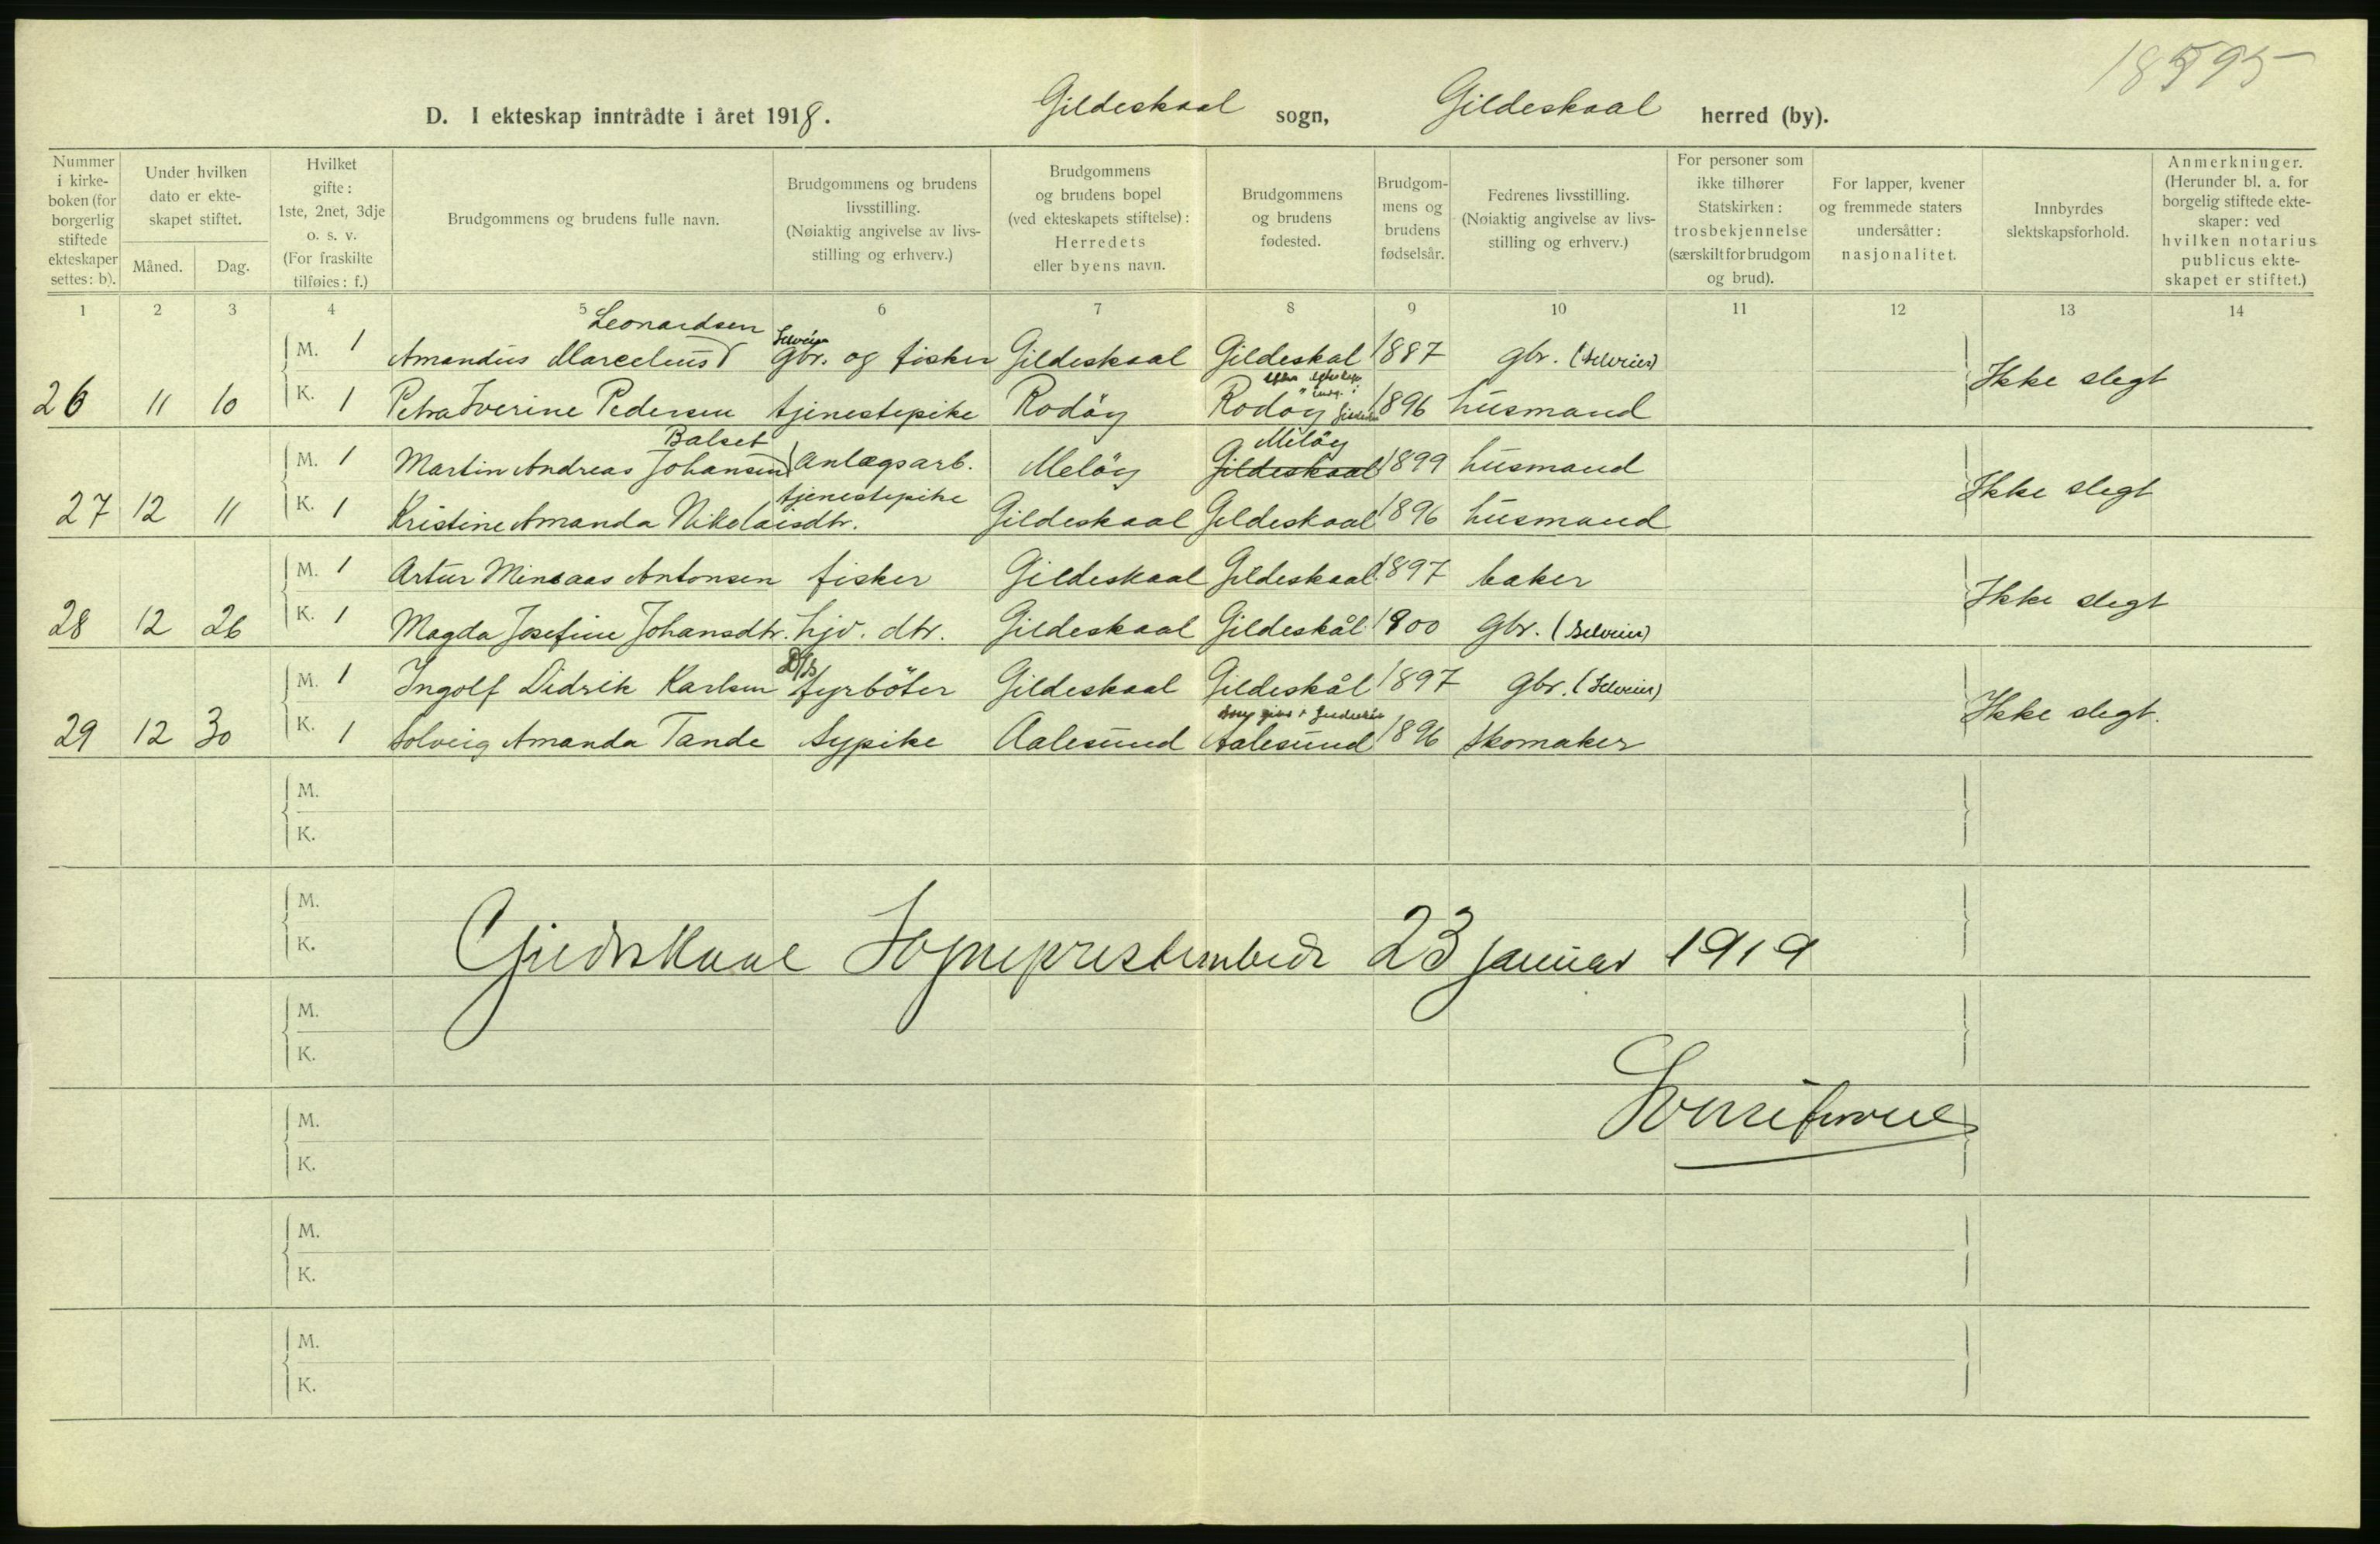 18595
D. I ekteskap inntrådte i året 1918. Gildeskaal sogn, Gildeskaal herred (by).
Nummer i kirkeboken (for borgerlig stiftede ekteskaper settes: b).
Under hvilken dato er ekteskapet stiftet.
Måned. Dag.
Hvilket gifte: 1ste, 2net, 3dje o. s. v. (For fraskilte tilføies: f.)
Brudgommens og brudens fulle navn.
Brudgommens og brudens livsstilling. (Nøiaktig angivelse av livsstilling og erhverv.)
Brudgommens og brudens bopel (ved ekteskapets stiftelse): Herredets eller byens navn.
Brudgommens og brudens fødested.
Brudgommens og brudens fødselsår.
Fedrenes livsstilling. (Nøiaktig angivelse av livsstilling og erhverv.)
For personer som ikke tilhører Statskirken: trosbekjennelse (særskilt for brudgom og brud).
For lapper, kvener og fremmede staters undersåtter: nasjonalitet.
Innbyrdes slektskapsforhold.
Anmerkninger. (Herunder bl. a. for borgelig stiftede ekteskaper: ved hvilken notarius publicus ekteskapet er stiftet.)
1 2 3 4 5 6 7 8 9 10 11 12 13 14
Leonardsen Selveier
M. 1 Amandus Marcelius gbr. og fisker Gildeskaal Gildeskal 1887 gbr. (Selveier)
26 11 10 K. 1 Petra Iverine Pedersen tjenestepike Rodöy Rodoy 1896 husmand Ikke slegt
Balset Melöy
M. 1 Martin Andreas Johansen Anlægsarb. Melöy Gildeskaal 1899 husmand
27 12 11 K. 1 Kristine Amanda Nikolaisdtr. tjenestepike Gildeskaal Gildeskaal 1896 husmand Ikke slegt
M. 1 Artur Minsaas Antonsen fisker Gildeskaal Gildeskaal 1897 baker
28 12 26 K. 1 Magda Josefine Johansdtr. hjv. dtr. Gildeskaal Gildeskål 1900 gbr. (Selveier) Ikke slegt
M. 1 Ingolf Didrik Karlsen D/S fyrböter Gildeskaal Gildeskål 1897 gbr. (Selveier)
29 12 30 K. 1 Solveig Amanda Tande sypike Aalesund Aalesund 1896 skomaker Ikke slegt.
M.
K.
M.
K.
Gildeskaal Sogneprestembede 23 januar 1919
M.
K.
M.
K.
M.
K.
M.
K.